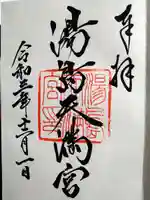 奉拝
湯島天満宮
令和三年十二月一日